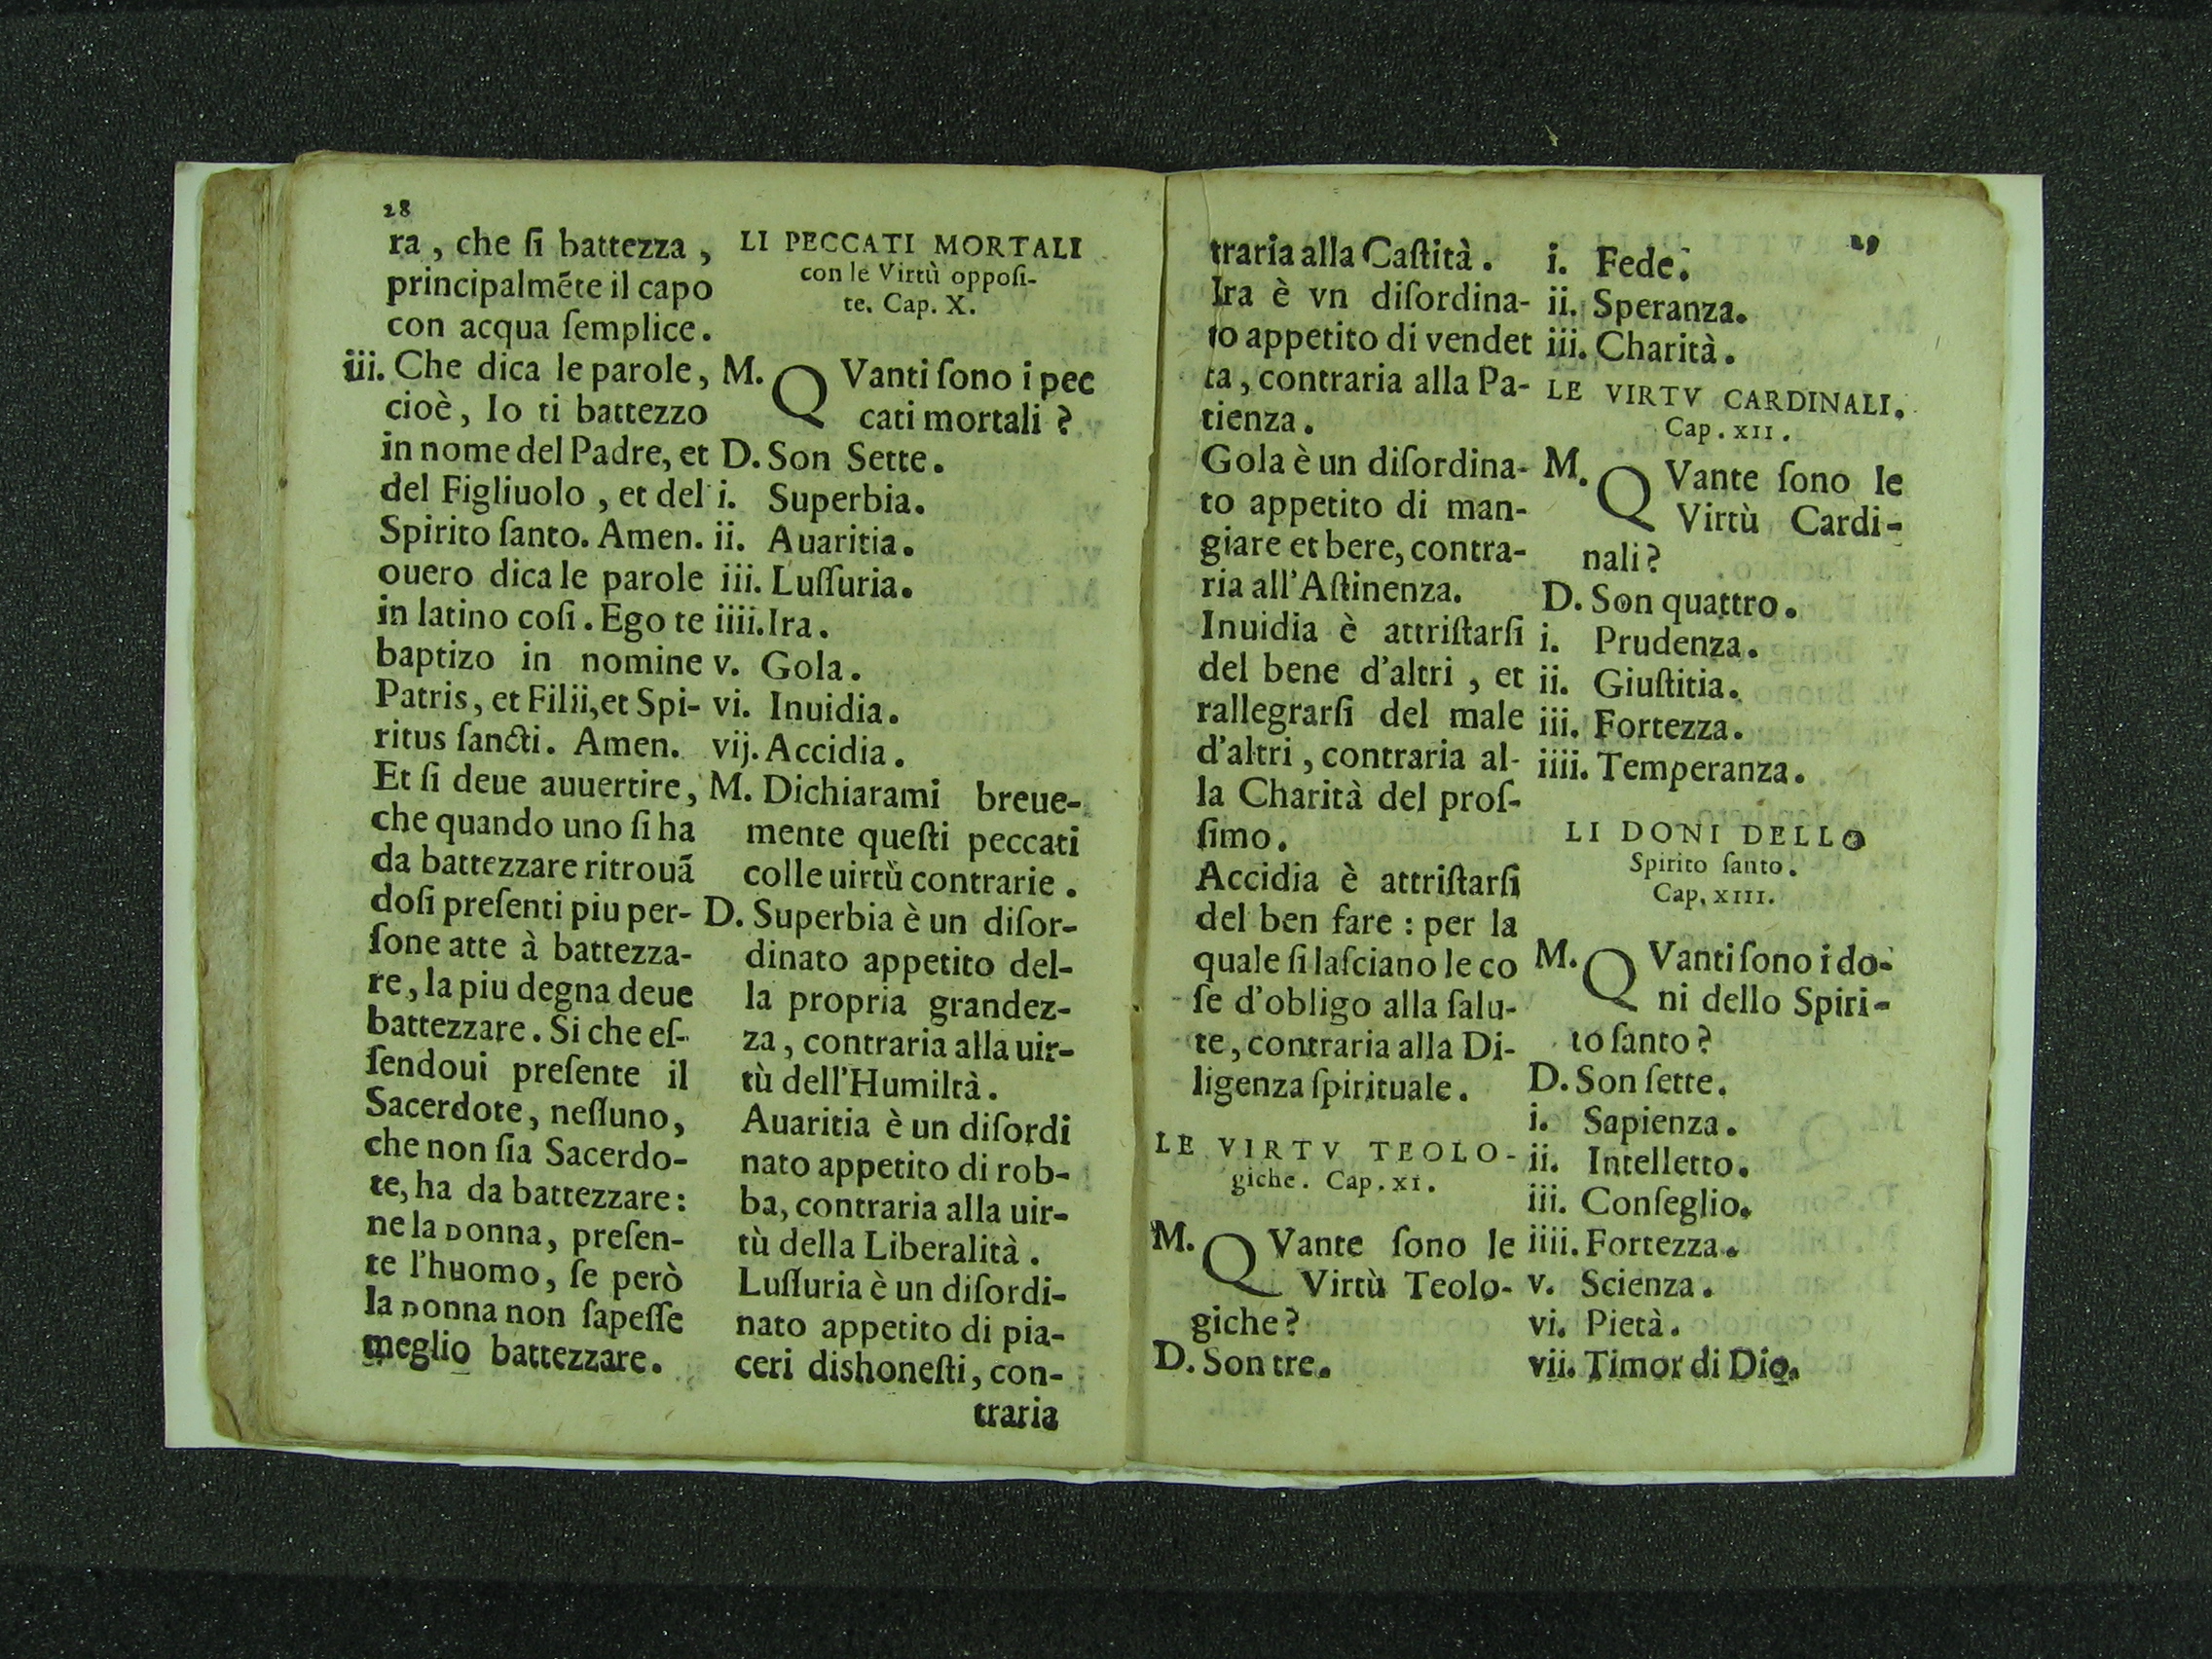 28
ra, che ſi battezza,
principalmẽte il capo
con acqua ſemplice.
iii. Che dica le parole,
cioè, Io ti battezzo
in nome del Padre, et
del Figliuolo, et del
Spirito ſanto. Amen.
ouero dica le parole
in latino coſi. Ego te
baptizo in nomine
Patris, et Filii, et Spi-
ritus ſancti. Amen.
Et ſi deue auuertire,
che quando uno ſi ha
da battezzare ritrouã
doſi preſenti piu per-
ſone atte à battezza-
re, la piu degna deue
battezzare. Si che eſ-
ſendoui preſente il
Sacerdote, neſſuno,
che non ſia Sacerdo-
te, ha da battezzare:
ne la Donna, preſen-
te l'huomo, ſe però
la Donna non ſapeſſe
meglio battezzare.
LI PECCATI MORTALI
con le Virtù oppoſi-
te. Cap. X.
M. QVanti ſono i pec
cati mortali?
D. Son Sette.
i. Superbia.
ii. Auaritia.
iii. Luſſuria.
iiii. Ira.
v. Gola.
vi. Inuidia.
vij. Accidia.
M. Dichiarami breue-
mente queſti peccati
colle uirtù contrarie.
D. Superbia è un diſor-
dinato appetito del-
la propria grandez-
za, contraria alla uir-
tù dell'Humiltà.
Auaritia è un diſordi
nato appetito di rob-
ba, contraria alla uir-
tù della Liberalità.
Luſſuria è un diſordi-
nato appetito di pia-
ceri dishoneſti, con-
traria
29
traria alla Caſtità.
Ira è vn diſordina-
to appetito di vendet
ta, contraria alla Pa-
tienza.
Gola è un diſordina-
to appetito di man-
giare et bere, contra-
ria all'Aſtinenza.
Inuidia è attriſtarſi
del bene d'altri, et
rallegrarſi del male
d'altri, contraria al-
la Charità del proſ-
ſimo.
Accidia è attriſtarſi
del ben fare: per la
quale ſi laſciano le co
ſe d'obligo alla ſalu-
te, contraria alla Di-
ligenza ſpirituale.
LE VIRTV TEOLO-
giche. Cap. XI.
M. QVante ſono le
Virtù Teolo-
giche?
D. Son tre.
i. Fede.
ii. Speranza.
iii. Charità.
LE VIRTV CARDINALI.
Cap. XII.
M. QVante ſono le
Virtù Cardi-
nali?
D. Son quattro.
i. Prudenza.
ii. Giuſtitia.
iii. Fortezza.
iiii. Temperanza.
LI DONI DELLO
Spirito ſanto.
Cap. XIII.
M. QVanti ſono i do-
ni dello Spiri-
to ſanto?
D. Son ſette.
i. Sapienza.
ii. Intelletto.
iii. Conſeglio.
iiii. Fortezza.
v. Scienza.
vi. Pietà.
vii. Timor di Dio.